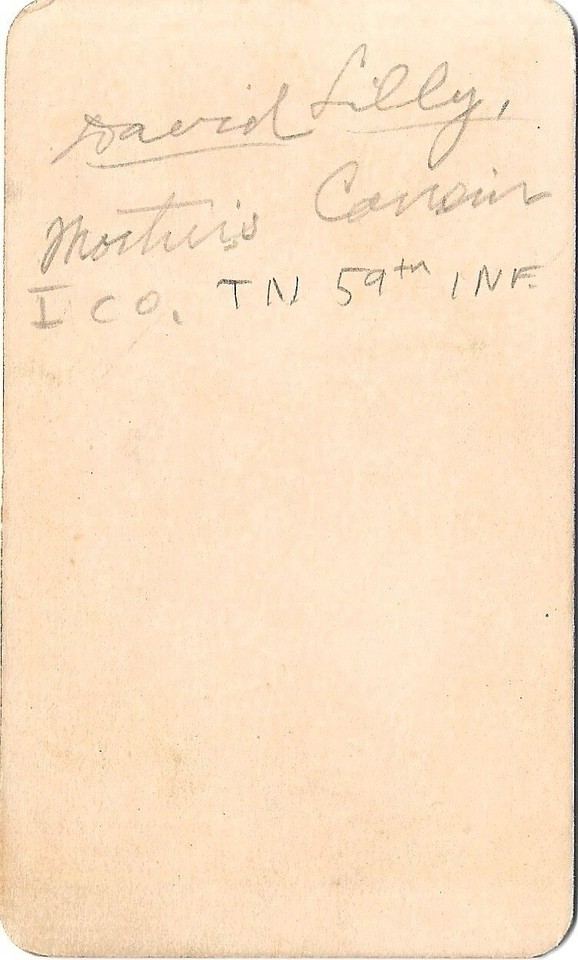 David Lilly,
Mother's Cousin
I CO. TN 59th INF.